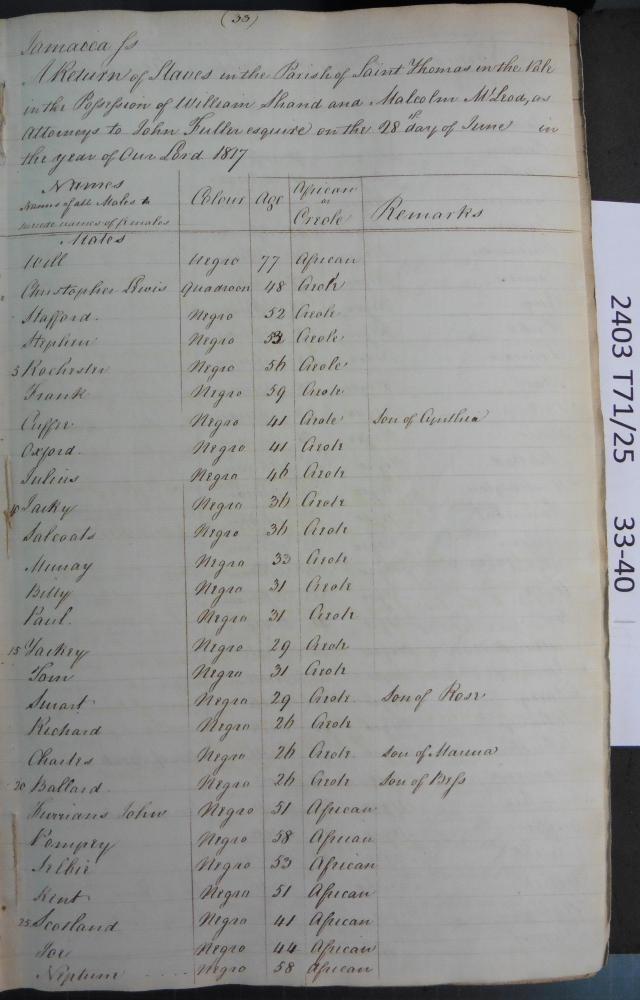 (33)
Jamaica Ss
A Return of Slaves in the Parish of Saint Thomas in the Vale
in the Possession of William Shand and Malcolm McLeod, as
Attorneys to John Fuller esquire on the 28th day of June in
the year of Our Lord 1817
Names
Names of all Males to
precede names of females Colour Age African or Creole Remarks
Males
Will Negro 77 African
Christopher Lewis Quadroon 48 Creole
Stafford Negro 52 Creole
Stephen Negro 53 Creole
5 Rochester Negro 56 Creole
Frank Negro 59 Creole
Cuffee Negro 41 Creole Son of Cynthia
Oxford Negro 41 Creole
Julius Negro 46 Creole
10 Jacky Negro 36 Creole
Salcoats Negro 36 Creole
Murray Negro 33 Creole
Billy Negro 31 Creole
Paul Negro 31 Creole
15 Yackey Negro 29 Creole
Tom Negro 31 Creole
Smart Negro 29 Creole Son of Rose
Richard Negro 26 Creole
Charles Negro 26 Creole Son of
20 Ballard Negro 26 Creole Son of Bess
John Negro 51 African
Pompey Negro 58 African
Negro 53 African
Kent Negro 51 African
25 Scotland Negro 41 African
Joe Negro 44 African
Neptune Negro 58 African
2403 T71/25 33-40